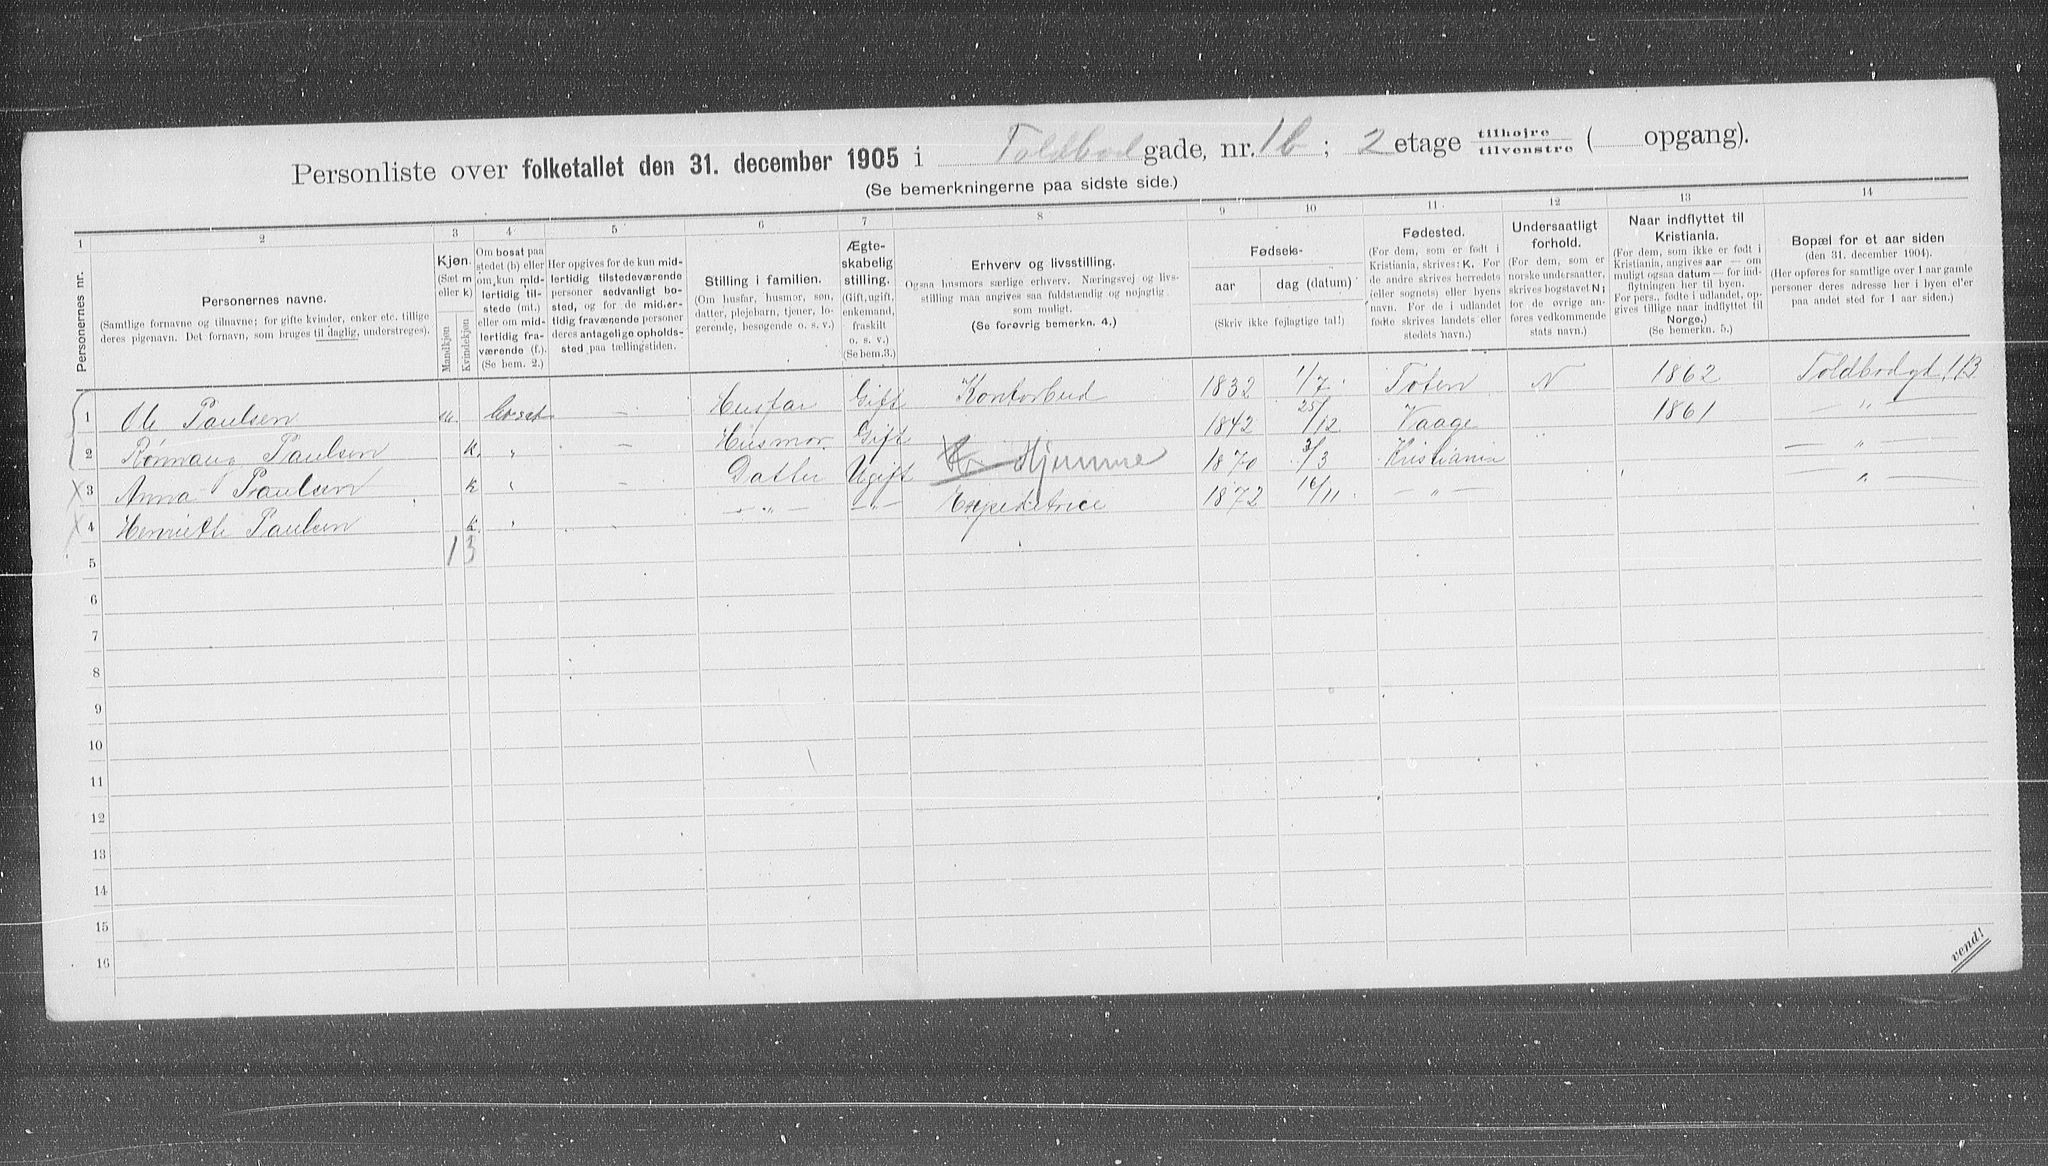 Personliste over folketallet den 31. december 1905 i Toldbod gade, nr. 1b; 2 etage tilhøjre tilvenstre ( opgang).
(Se bemerkningerne paa sidste side.)
1 2 3 4 5 6 7 8 9 10 11. 12 13 14
Personernes nr.
Personernes navne.
(Samtlige fornavne og tilnavne; for gifte kvinder, enker etc. tillige
deres pigenavn. Det fornavn, som bruges til daglig, understreges).
Kjøn.
(Sæt m
eller k)
Mandkjøn
Kvindekjøn
Om bosat paa
stedet (b) eller
om kun mid-
lertidig til-
stede (mt.)
eller om mid-
lertidig fra-
værende (f.)
(Se bem. 2.)
Her opgives for de kun mid-
lertidig tilstedeværende
personer sedvanligt bo-
sted, og for de midler-
tidig fraværende personer
deres antagelige opholds-
sted paa tællingstiden.
Stilling i familien.
(Om husfar, husmor, søn,
datter, plejebarn, tjener, lo-
gerende, besøgende o. s. v.)
Ægte-
skabelig
stilling.
(Gift, ugift,
enkemand,
fraskilt
o. s. v.)
(Se bem.3.)
Erhverv og livsstilling.
Ogsaa husmors særlige erhverv. Næringsvej og livs-
stilling maa angives saa fuldstændig og nøjagtig
som muligt.
(Se forøvrig bemerkn. 4.)
Fødsels-
aar
dag (datum)
(Skriv ikke fejlagtige tal!)
Fødested.
(For dem, som er født i
Kristiania, skrives: K. For
de andre skrives herredets
(eller sognets) eller byens
navn. For de i udlandet
fødte skrives landets eller
stedets navn.)
Undersaatligt
forhold.
(For dem, som er
norske undersaatter,
skrives bogstavet N;
for de øvrige an-
føres vedkommende
stats navn.)
Naar indflyttet til
Kristiania.
(For dem, som ikke er født i
Kristiania, angives aar — om
muligt ogsaa datum — for ind-
flytningen her til byen.
For pers., fødte i udlandet, op-
gives tillige naar indflyttet til
Norge.)
(Se bemerkn. 5.)
Bopæl for et aar siden
(den 31. december 1904).
(Her opføres for samtlige over 1 aar gamle
personer deres adresse her i byen el'er
paa andet sted for 1 aar siden.)
1 Ole Paulsen m bosat - Husfar Gift Kontorbud 1832 1/7 Toten N 1862 Toldbodgt 1B
2 Rønnaug Paulsen k. " - Husmor Gift 1842 25/12 Vaage " 1861 — " —
3 Anna Paulsen k " - Datter Ugift Hjemme 1870 3/3 Kristiania — " —
4 Henriette Paulsen k. " - — " — — " — Expeditrice 1872 16/11 — " — — " —
5 1 3
6
7
8
9
10
11
12
13
14
15
16
vend!